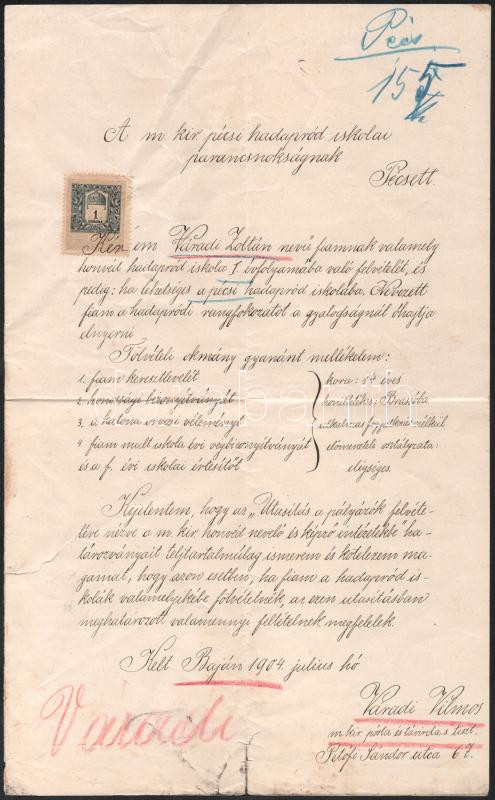 Pécs
A m. kir. pécsi hadapród iskolai
parancsnokságnak
Pécsett.
1
KORONA
Kérém Váradi Zoltán nevű fiamnak valamely
honvéd hadapród iskola I évfolyamába való felvételét, és
pedig: ha lehetséges a pécsi hadapród iskolába. Nevezett
fiam a hadapródi rangfokozatot a gyalogságnál óhajtja
elnyerni.
Fölvételi okmány gyanánt mellékelem:
1. fiam keresztlevelét
2. honossági bizonyítványát
3. a katona orvosi véleményt
4. fiam mult iskola évi végbizonyítványát
és a f. évi iskolai értesítőt
kora: 14 éves
honilletékes: Brassóba
alkalmas fogyatkozás nélkül
előmeneteli osztályzata:
elégséges.
Kijelentem, hogy az „Utasítás a pályázók felvéte-
lére nézve a m. kir. honvéd nevelő és képző intézetekbe" ha-
tározványait teljtartalmúlag ismerem és kötelezem ma-
gamat, hogy azon esetben, ha fiam a hadapród is-
kolák valamelyikébe fölvétetnék, az ezen utasításban
meghatározott valamennyi feltételnek megfelelek.
Kelt Baján 1904. július hó
Váradi
Váradi Vilmos
m. kir. posta és távirda s. tiszt.
Petőfi Sándor utca 67.